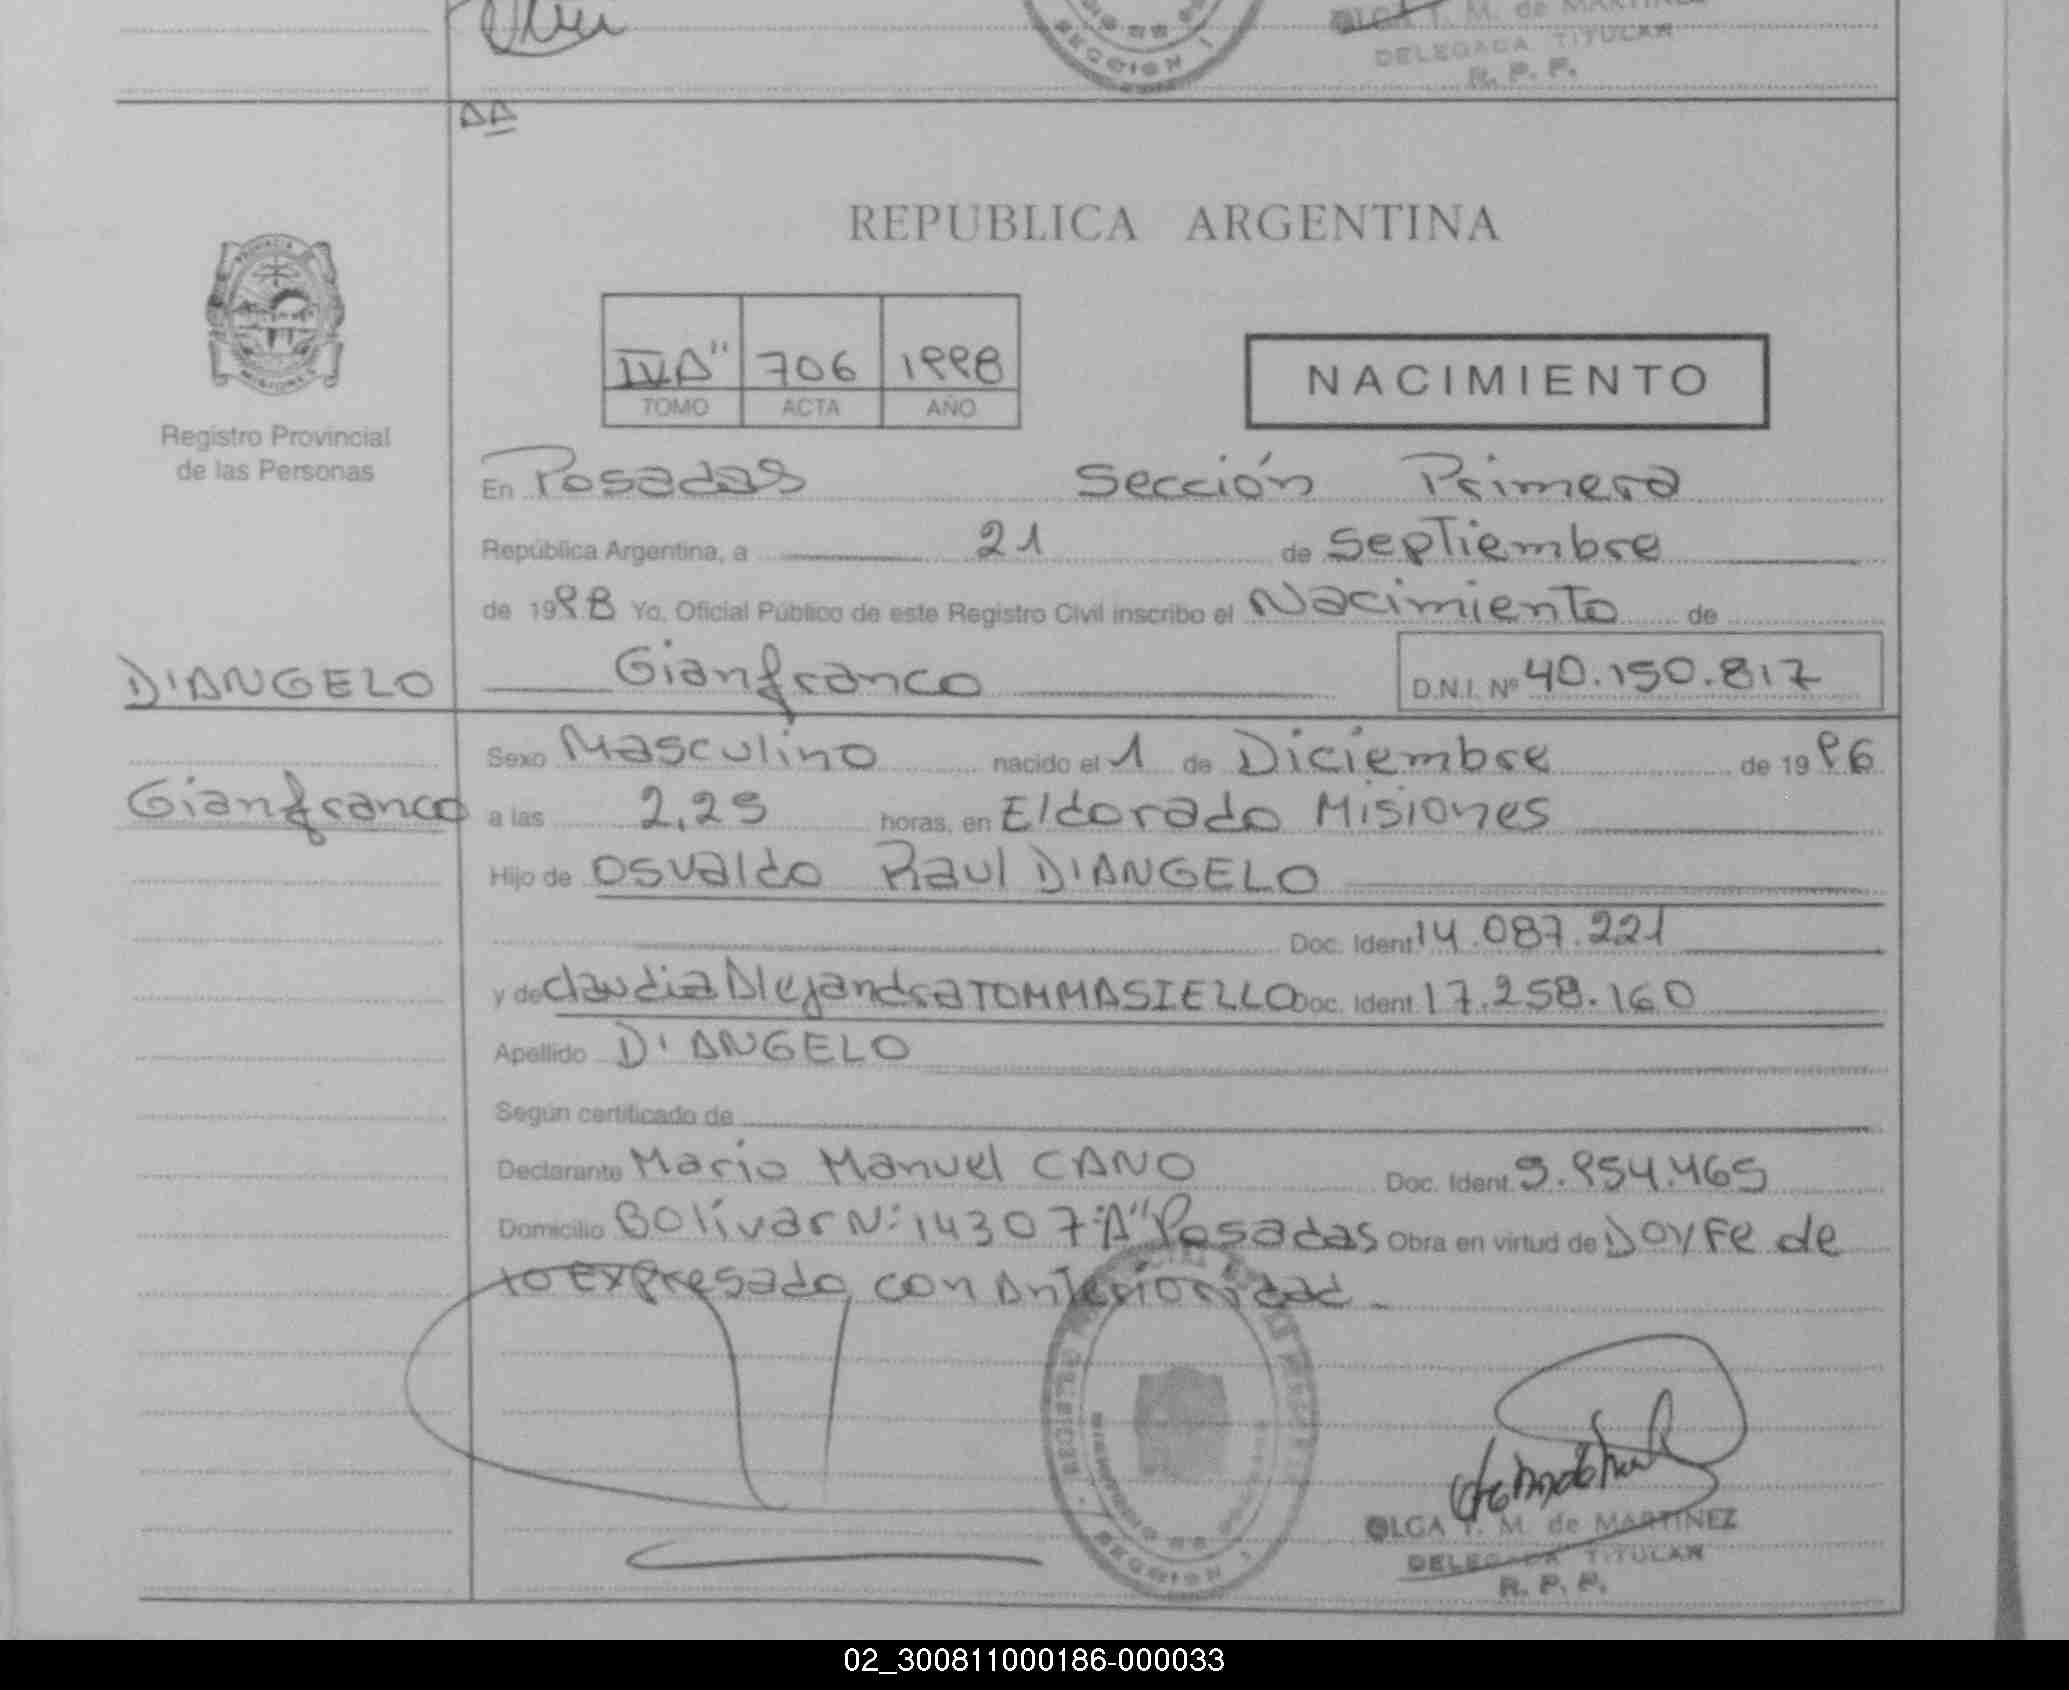 OLGA T. M. de MARTINEZ
DELEGADA TITULAR
R. P. P.
SECCION 1
AA
REPUBLICA ARGENTINA
PROVINCIA
MISIONES
Registro Provincial
de las Personas
IV A" 706 1998
TOMO ACTA AÑO
NACIMIENTO
En Posadas Sección Primera
República Argentina, a 21 de Septiembre
de 1998 Yo, Oficial Público de este Registro Civil inscribo el Nacimiento de
D'ANGELO Gianfranco D.N.I. Nº 40.150.817
Sexo Masculino nacido el 1 de Diciembre de 1996
Gianfranco a las 2,25 horas, en Eldorado Misiones
Hijo de Osvaldo Raul D'ANGELO
Doc. Ident. 14.087.221
y de Claudia Alejandra TOMMASIELLO Doc. Ident. 17.258.160
Apellido D'ANGELO
Según certificado de
Declarante Mario Manuel CANO Doc. Ident. 9.954.465
Domicilio Bolívar Nº 1430 7 "A" Posadas Obra en virtud de Doy Fe de
lo Expresado con Anterioridad.
SECCION 1
OLGA T. M. de MARTINEZ
DELEGADA TITULAR
R. P. P.
02_300811000186-000033